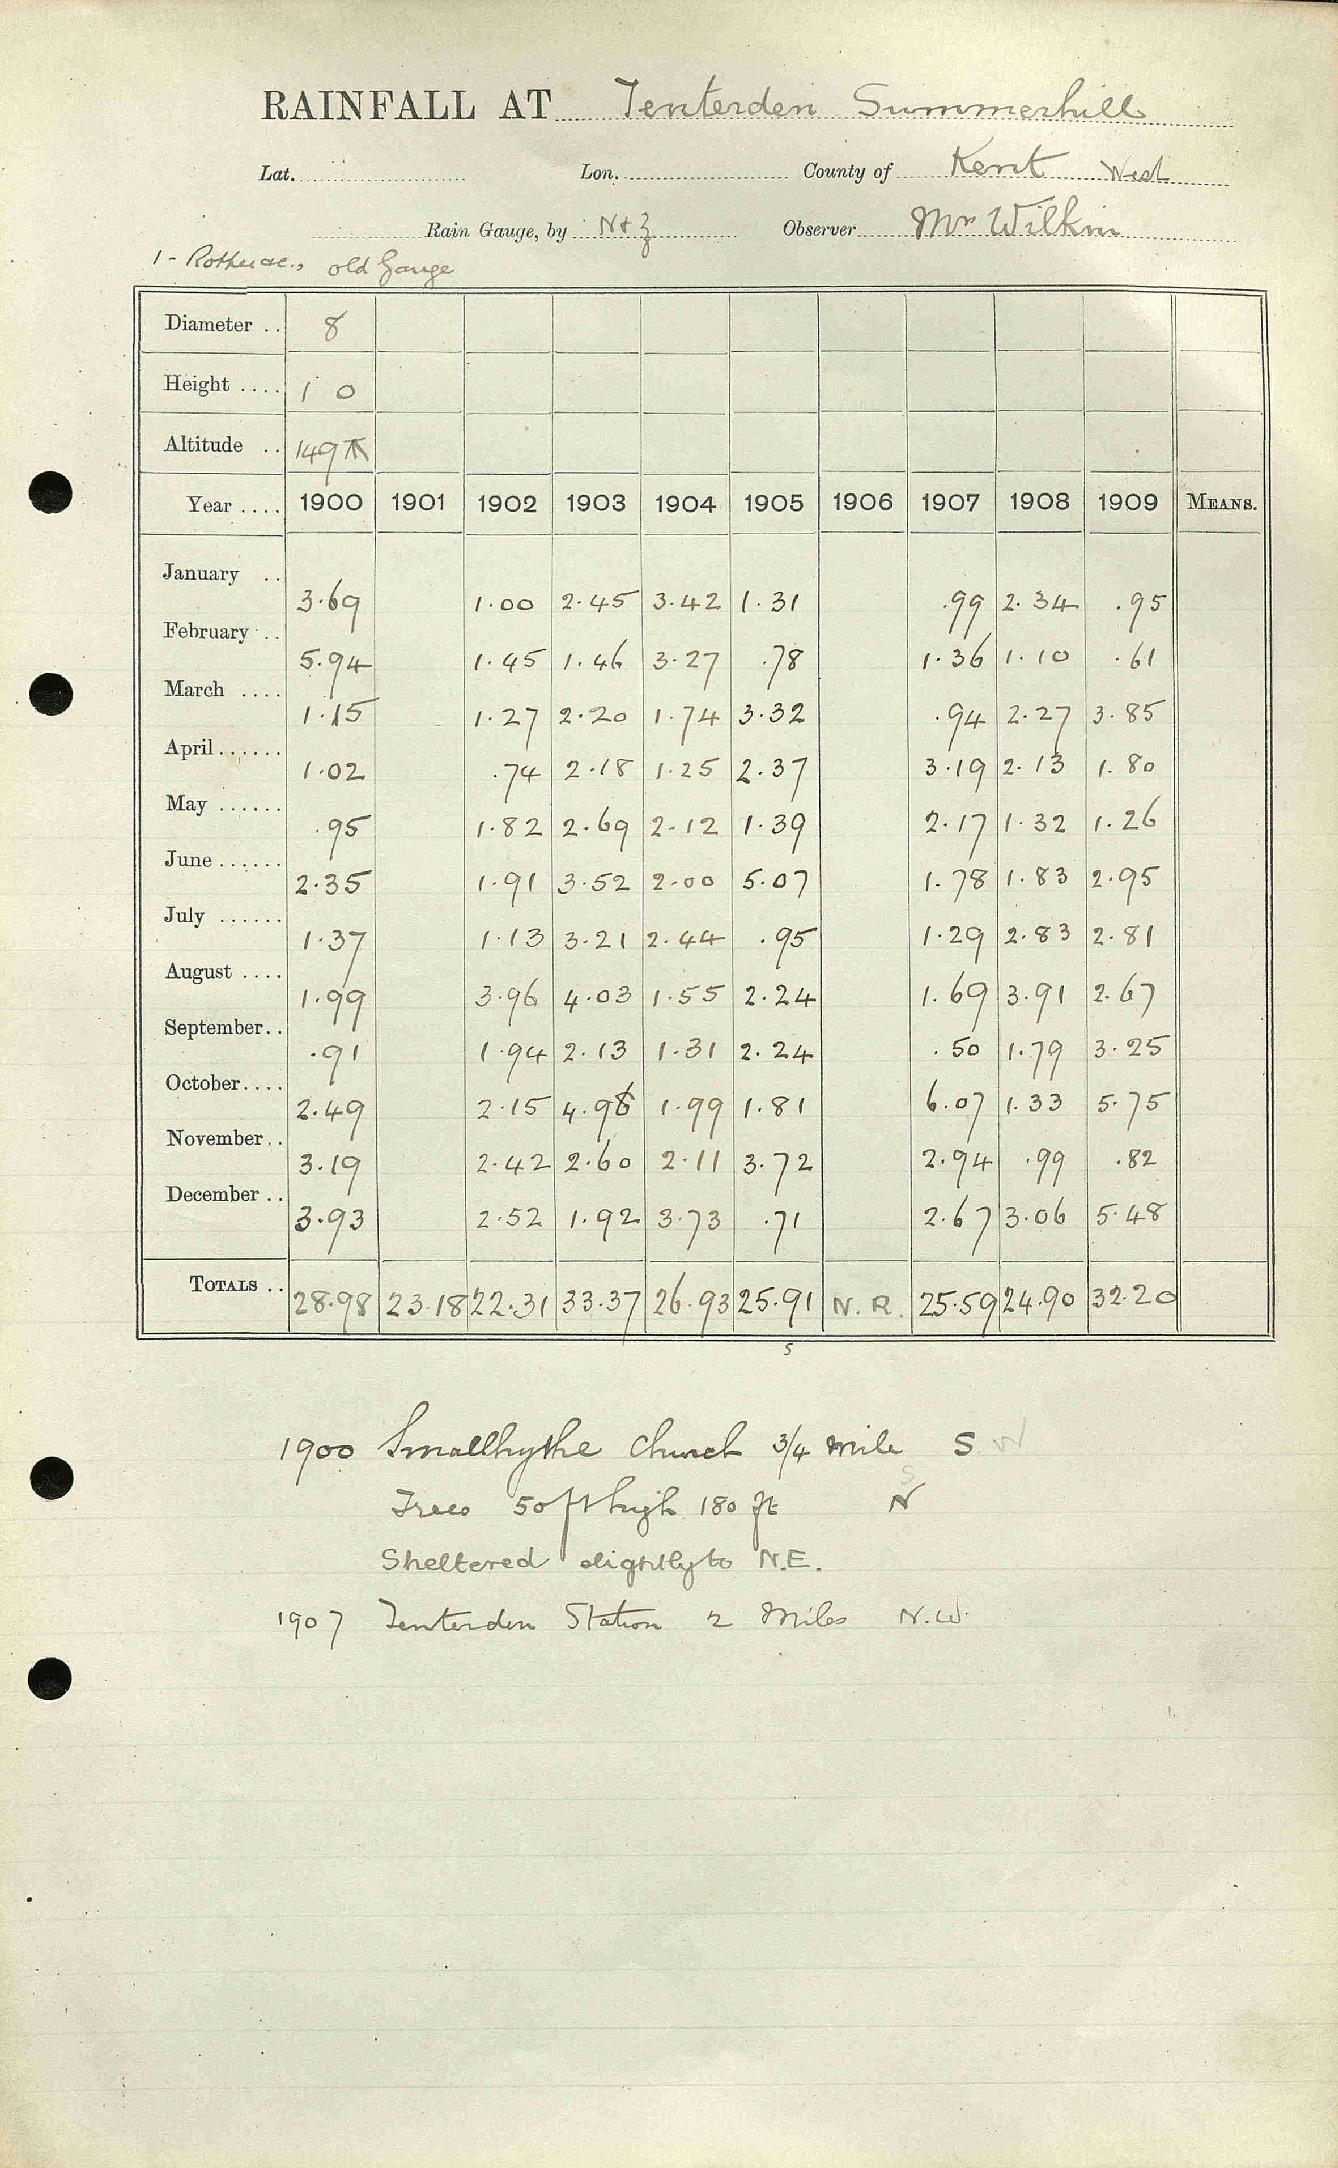 RAINFALL AT Tenterden Summerhill
Lat. Lon. County of Kent West
Rain Gauge, by N+Z Observer Mr Wilkin
old Gauge
Diameter .. 8
Height .... 1 0
Altitude .. 149
Year .... 1900 1901 1902 1903 1904 1905 1906 1907 1908 1909 MEANS.
January .. 3.69 1.00 2.45 3.42 1.31 .99 2.34 .95
February .. 5.94 1.45 1.46 3.27 .78 1.36 1.10 .61
March .... 1.15 1.27 2.20 1.74 3.32 .94 2.27 3.85
April...... 1.02 .74 2.18 1.25 2.37 3.19 2.13 1.80
May ...... .95 1.82 2.69 2.12 1.39 2.17 1.32 1.26
June ...... 2.35 1.91 3.52 2.00 5.07 1.78 1.83 2.95
July ...... 1.37 1.13 3.21 2.44 .95 1.29 2.83 2.81
August .... 1.99 3.96 4.03 1.55 2.24 1.69 3.91 2.67
September.. .91 1.94 2.13 1.31 2.24 .50 1.79 3.25
October.... 2.49 2.15 4.98 1.99 1.81 6.07 1.33 5.75
November.. 3.19 2.42 2.60 2.11 3.72 2.94 .99 .82
December .. 3.93 2.52 1.92 3.73 .71 2.67 3.06 5.48
TOTALS .. 28.98 23.18 22.31 33.37 26.93 25.91 N.R. 25.59 24.90 32.20
5
1900 Smallhythe Church 3/4 mile S W
Trees 50 ft high 180 ft N
Sheltered slightly to N.E.
1907 Tenterden Station 2 Miles N.W.